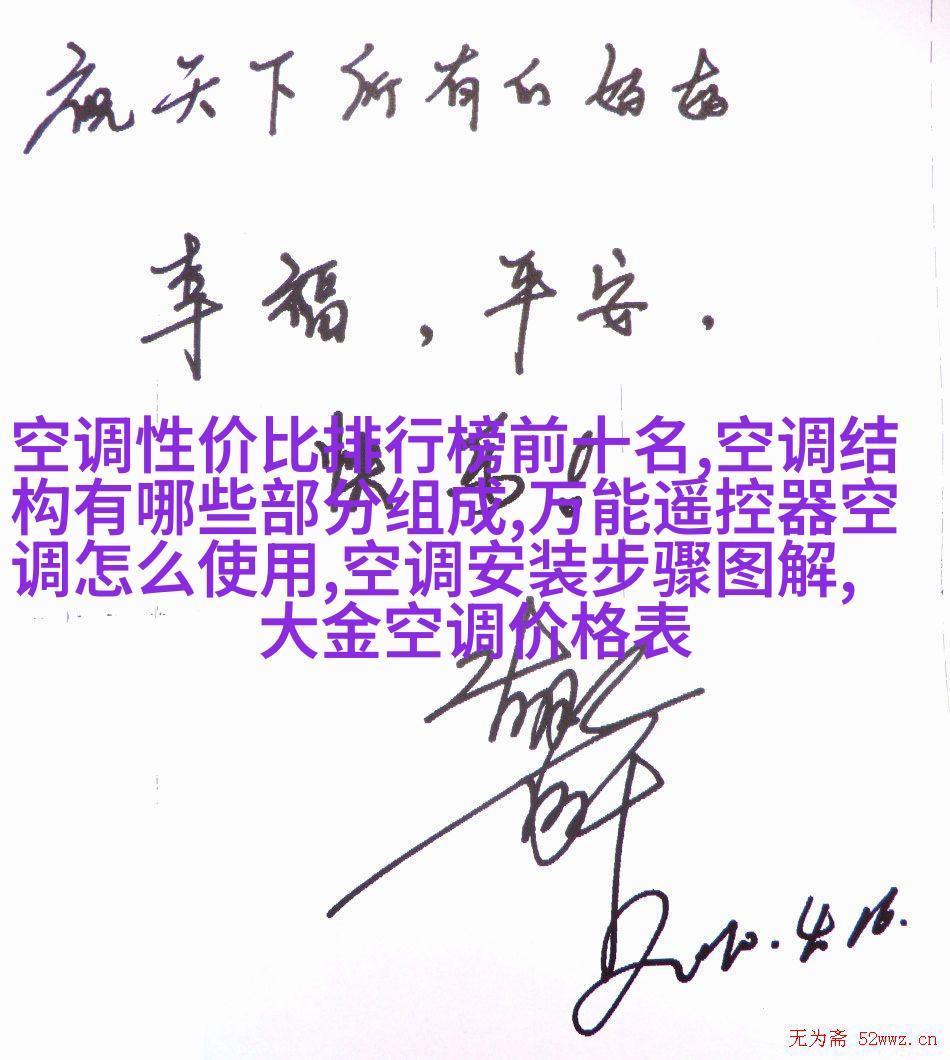 祝天下所有的妈妈
幸福，平安，
空调性价比排行榜前十名,空调结
构有哪些部分组成,万能遥控器空
调怎么使用,空调安装步骤图解,
大金空调价格表
2010.4.16.
无为斋 52wwz.cn